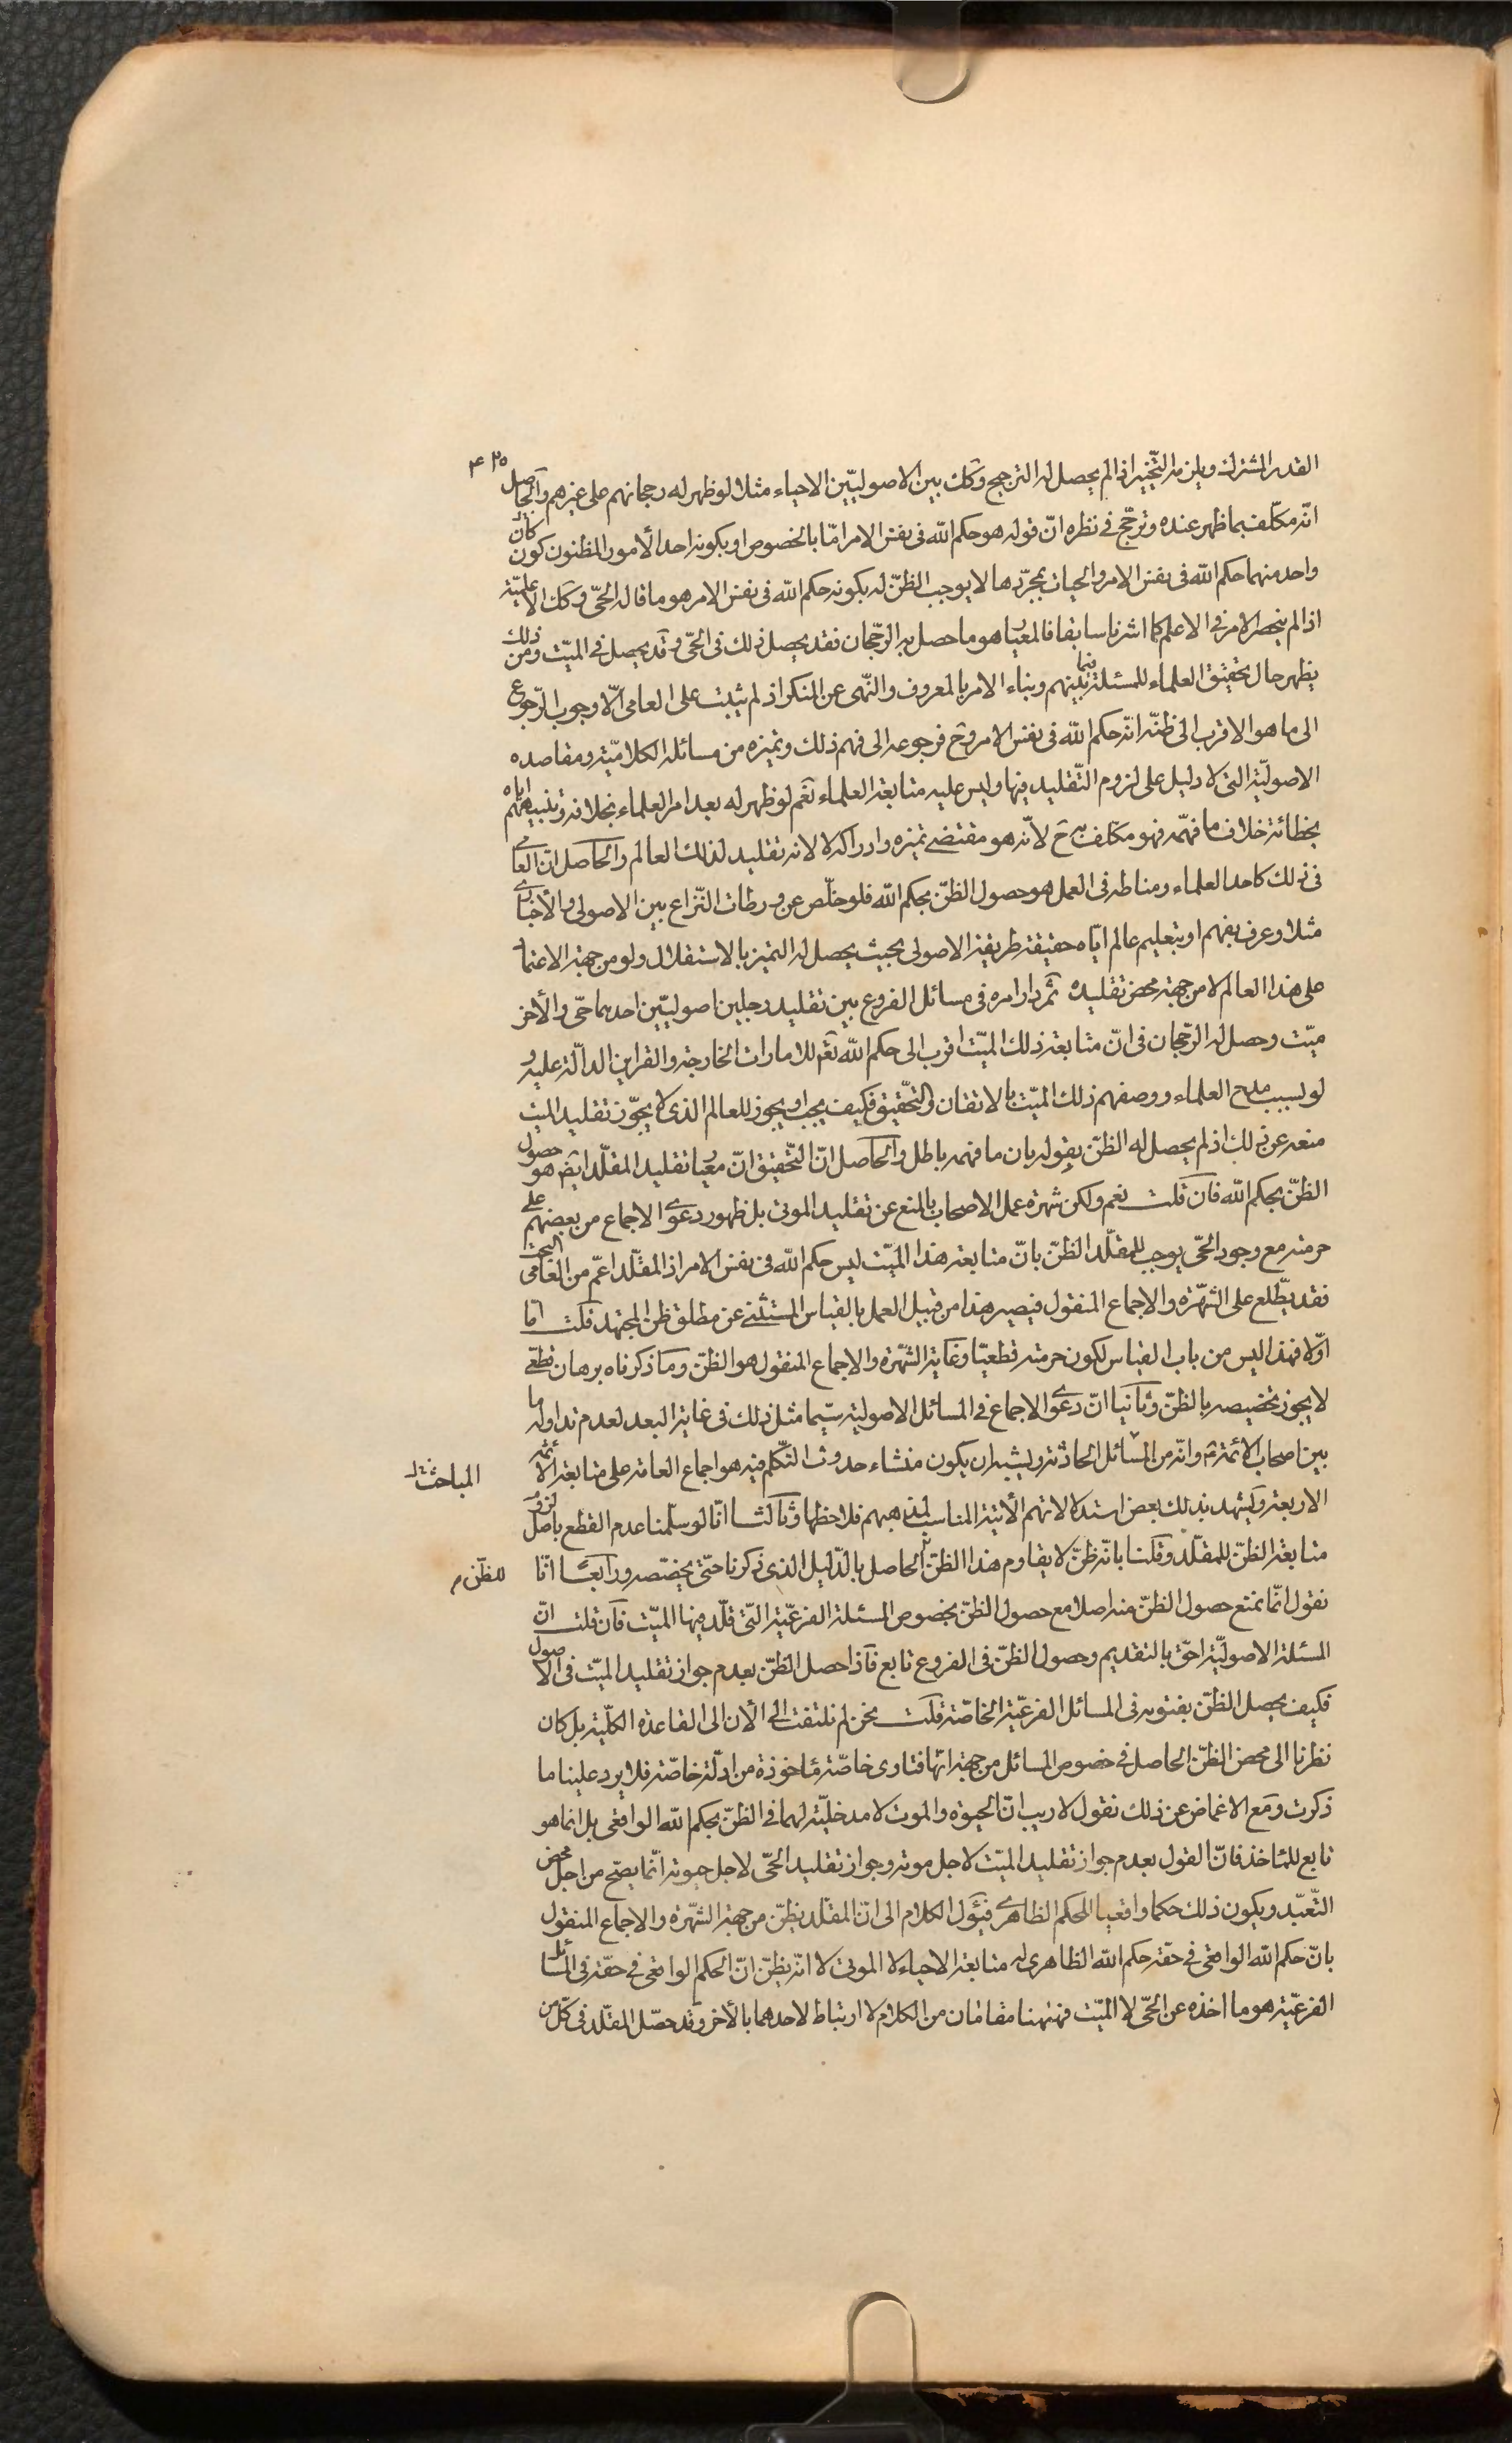 القدر المشترك ويلزمه التّخيير اذا لم يحصل له الترجيح وكك بين الاصوليّين الاحياء مثلا لو ظهر له رجحانهم على غيرهم والحاصل
انّه مكلّف بما ظهر عنده وترجّح فى نظره انّ قوله هو حكم اللّه فى نفس الامر امّا بالخصوص او بكونه احد الأمور المظنون كون كان
واحد منهما حكم اللّه فى نفس الامر والحيات بمجرّدها لا يوجب الظنّ له بكونه حكم اللّه فى نفس الامر هو ما قاله الحىّ وكك الأعلميّة
اذا لم ينحصر الامر فى الاعلم كما اشرنا سابقا فالمعيار هو ما حصل به الرّجحان فقد يحصل ذلك فى الحىّ وقد يحصل فى الميّت ومن ذلك
يظهر حال تحقيق العلماء للمسئلة فيما بينهم وبناء الامر بالمعروف والنّهى عن المنكر اذ لم يثبت على العامى الّا وجوب الرّجوع
الى ما هو الاقرب الى ظنّه انّه حكم اللّه فى نفس الامر وح فرجوعه الى فهم ذلك وتميزه من مسائله الكلاميّة ومقاصده
الاصوليّة التى لا دليل على لزوم التّقليد فيها وليس عليه متابعة العلماء نعم لو ظهر له بعد امر العلماء بخلافه وتنبيههم اياه
بخطائه خلاف ما فهمه فهو مكلّف به ح لانّه هو مقتضى تميزه وادراكه لا لانه تقليد لذلك العالم والحاصل انّ العامى
فى ذلك كاحد العلماء ومناطه فى العمل هو حصول الظنّ بحكم اللّه فلو خلّص عن ورطات النّزاع بين الاصولى والأخبارى
مثلا وعرف بفهم او بتعليم عالم ايّاه حقيقة طريقة الاصولى بحيث يحصل له التميز بالاستقلال ولو من جهة الاعتماد
على هذا العالم لا من جهة محض تقليده ثمّ دار امره فى مسائل الفروع بين تقليد رجلين اصوليّين احدهما حىّ والأخر
ميّت وحصل له الرّجحان فى انّ متابعة ذلك الميّت اقرب الى حكم اللّه تعم للامارات الخارجة والقراين الدالّة عليه و
لو لسبب مدح العلماء ووصفهم ذلك الميّت بالاتقان والتّحقيق فكيف يجب او يجوز للعالم الذى لا يجوّز تقليد الميت
منعه عن ذلك اذ لم يحصل له الظنّ بقوله بان ما فهمه باطل والحاصل انّ التّحقيق انّ معيار تقليد المقلّد ايضً هو حصول
الظنّ بحكم اللّه فان قلت نعم ولكن شهرة عمل الاصحاب بالمنع عن تقليد الموتى بل ظهور دعوى الاجماع من بعضهم على
حرمته مع وجود الحىّ يوجب للمقلّد الظنّ بانّ متابعة هذا الميّت ليس حكم اللّه فى نفس الامر اذ المقلّد اعمّ من العامى البحت
فقد يطّلع على الشهّرة والاجماع المنقول فيصير هذا من قبيل العمل بالقياس المستثنى عن مطلق ظن المجتهد قلت امّا
اوّلا فهذا ليس من باب القياس لكون حرمته قطعيّا وغاية الشهّرة والاجماع المنقول هو الظنّ وما ذكرناه برهان قطعى
لا يجوز تخصيصه بالظنّ وثانيا انّ دعوى الاجماع فى المسائل الاصولية سيّما مثل ذلك فى غاية البعد لعدم تداوله ما
بين اصحاب الائمّة ع وانّه من المسائل الحادثة ويشبه ان يكون منشاء حدوث التكلّم فيه هو اجماع العامة على متابعة الائمّة
المباحثة
الاربعة ويشهد بذلك بعض استدلالاتهم الأتية المناسب لمذهبهم فلاحظها وثالثا انّا لو سلّمنا عدم القطع باصل لزوم
متابعة الظنّ للمقلّد وقلنا بانّه ظنّ لا يقاوم هذا الظنّ الحاصل بالدّليل الذى ذكرنا حتّى يخصّصه ورابعًا انّا
للظنّ م
نقول انّما نمنع حصول الظنّ منه اصلا مع حصول الظنّ بخصوص المسئلة الفرعيّة التّى قلّد فيها الميّت فان قلت انّ
المسئلة الاصوليّة احقّ بالتقديم وحصول الظنّ فى الفروع تابع فاذا حصل الظنّ بعدم جواز تقليد الميّت فى الاصول
فكيف يحصل الظنّ بفتويه فى المسائل الفرعيّة الخاصّة قلت نحن لم نلتفت الى الأن الى القاعدة الكلّية بل كان
نظرنا الى محض الظنّ الحاصل فى خصوص المسائل من جهة انّها فتاوى خاصّة مأخوذة من ادلّة خاصّة فلا يرد علينا ما
ذكرت ومع الاغماض عن ذلك نقول لا ريب انّ الحيوة والموت لا مدخليّة لهما فى الظنّ بحكم اللّه الواقعى بل انما هو
تابع للمأخذ فانّ القول بعدم جواز تقليد الميّت لاجل موته وجواز تقليد الحىّ لاجل حيوته انّما يصّح من اجل محض
التّعبّد ويكون ذلك حكما واقعيا للحكم الظاهرى فيئول الكلام الى انّ المقلّد يظنّ من جهة الشهّرة والاجماع المنقول
بانّ حكم اللّه الواقعى فى حقّه حكم اللّه الظاهرى له متابعة الاحياء لا الموتى لا انّه يظنّ انّ الحكم الواقعى فى حقّه فى المسائل
الفرعيّة هو ما اخذه عن الحىّ لا الميّت فههنا مقامان من الكلام لا ارتباط لاحدهما بالأخر وقد حصّل المقلّد فى كلّ من